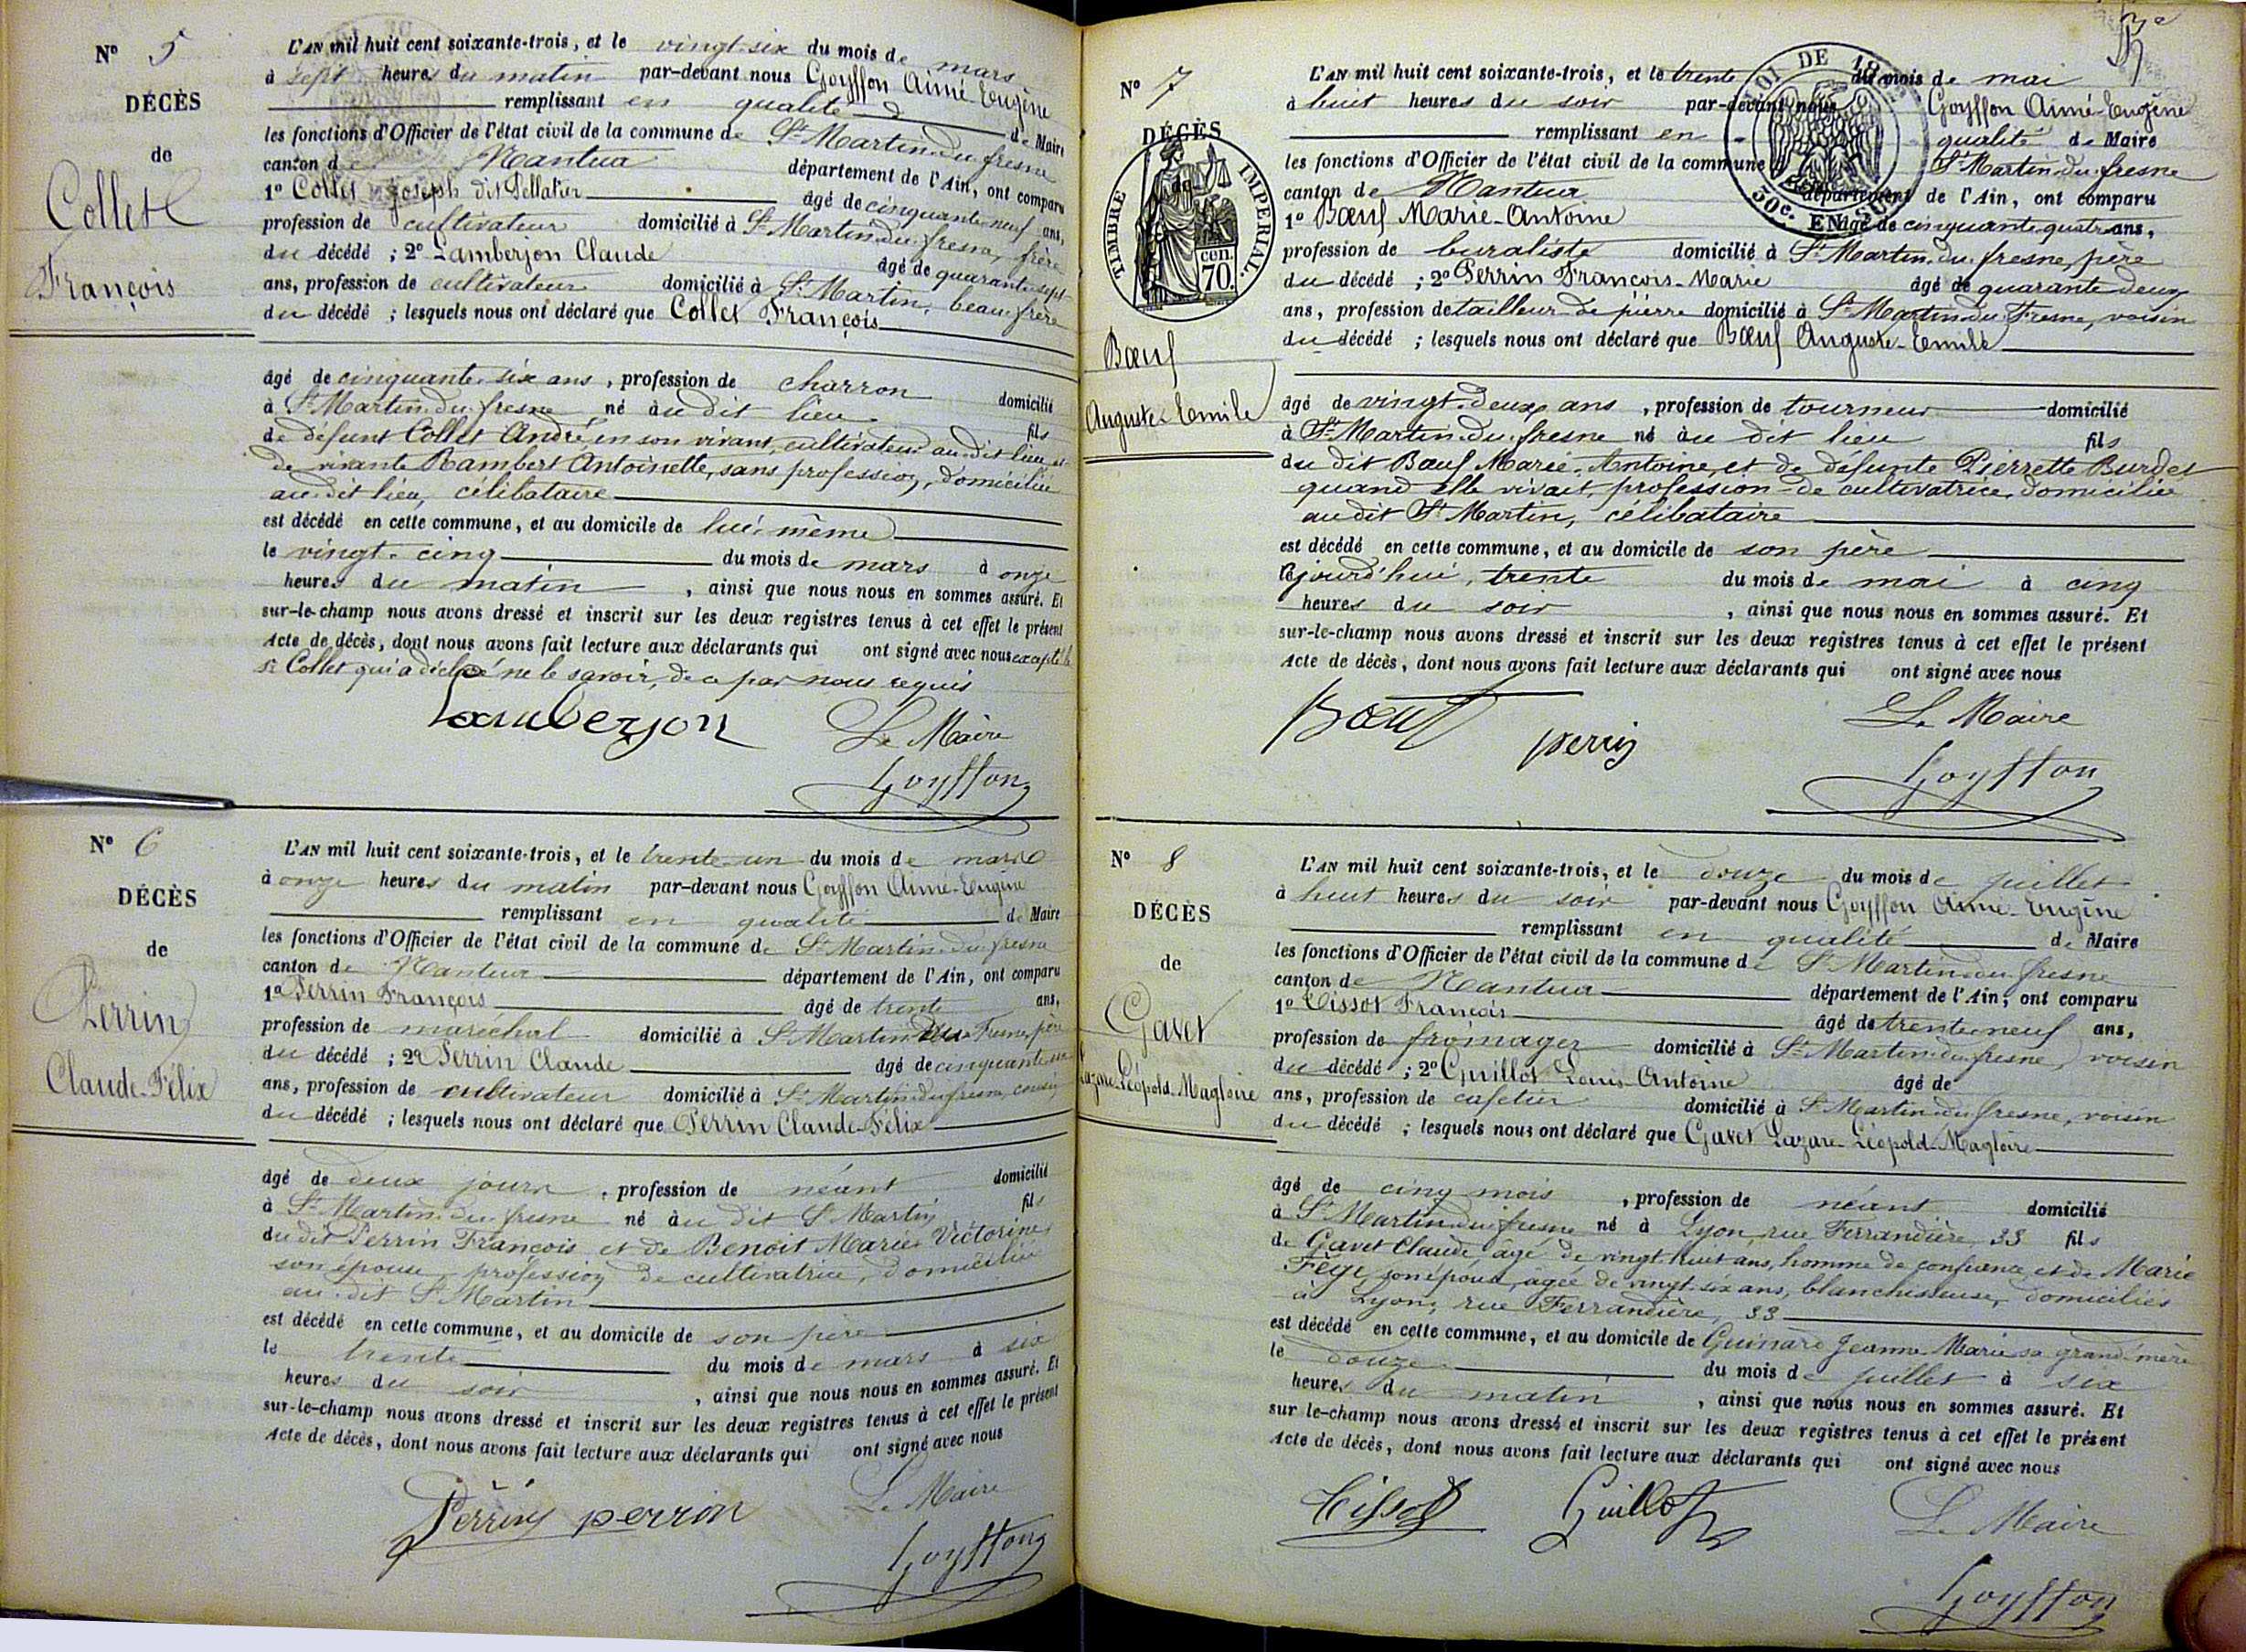 N° 5
DÉCÈS
de
Collet
François
L'AN mil huit cent soixante-trois, et le vingt-six du mois de mars
à sept heures du matin par-devant nous Goyffon Aimé-Eugène
remplissant en qualité de Maire
les fonctions d'Officier de l'état civil de la commune de St Martin-du-fresne
canton de Nantua département de l'Ain, ont comparu
1° Collet Joseph dit Pellatier âgé de cinquante-neuf ans,
profession de cultivateur domicilié à St Martin-du-fresne, frère
du décédé ; 2° Lamberjon Claude âgé de quarante-sept
ans, profession de cultivateur domicilié à St Martin, beau-frère
du décédé ; lesquels nous ont déclaré que Collet François
âgé de cinquante-six ans, profession de charron domicilié
à St Martin-du-fresne né au dit lieu fils
de défunt Collet André en son vivant, cultivateur au dit lieu et
de vivante Rambert Antoinette, sans profession, domiciliée
au dit lieu, célibataire
est décédé en cette commune, et au domicile de lui-même
le vingt-cinq du mois de mars à onze
heures du matin, ainsi que nous nous en sommes assuré. Et
sur-le-champ nous avons dressé et inscrit sur les deux registres tenus à cet effet le présent
Acte de décès, dont nous avons fait lecture aux déclarants qui ont signé avec nous excepté le
sr Collet qui a déclaré ne le savoir, de ce par nous requis
Lamberjon Le Maire
Goyffon
N° 6
DÉCÈS
de
Perrin
Claude-Félix
L'AN mil huit cent soixante-trois, et le trente-un du mois de mars
à onze heures du matin par-devant nous Goyffon Aimé-Eugène
remplissant en qualité de Maire
les fonctions d'Officier de l'état civil de la commune de St Martin-du-fresne
canton de Nantua département de l'Ain, ont comparu
1° Perrin François âgé de trente ans,
profession de maréchal domicilié à St Martin-du-Fresne, père
du décédé ; 2° Perrin Claude âgé de cinquante-un
ans, profession de cultivateur domicilié à St Martin-du-fresne, cousin
du décédé ; lesquels nous ont déclaré que Perrin Claude-Félix
âgé de deux jours, profession de néant domicilié
à St Martin-du-fresne né au dit St Martin fils
du dit Perrin François et de Benoit Marie Victorine
son épouse, profession de cultivatrice, domiciliée
au dit St Martin
est décédé en cette commune, et au domicile de son père
le trente du mois de mars à six
heures du soir, ainsi que nous nous en sommes assuré. Et
sur-le-champ nous avons dressé et inscrit sur les deux registres tenus à cet effet le présent
Acte de décès, dont nous avons fait lecture aux déclarants qui ont signé avec nous
Perrin perrin Le Maire
Goyffon
N° 7
DÉCÈS
de
TIMBRE IMPÉRIAL.
70 cen.
LOI DE
30c. EN SUS
Bœuf
Auguste-Emile
L'AN mil huit cent soixante-trois, et le trente du mois de mai
à huit heures du soir par-devant nous Goyffon Aimé-Eugène
remplissant en qualité de Maire
les fonctions d'Officier de l'état civil de la commune St Martin-du-fresne
canton de Nantua département de l'Ain, ont comparu
1° Bœuf Marie-Antoine âgé de cinquante-quatre ans,
profession de buraliste domicilié à St Martin-du-fresne, père
du décédé ; 2° Perrin François-Marie âgé de quarante-deux
ans, profession de tailleur de pierre domicilié à St Martin-du-Fresne, voisin
du décédé ; lesquels nous ont déclaré que Bœuf Auguste-Emile
âgé de vingt-deux ans, profession de tourneur domicilié
à St Martin-du-fresne né au dit lieu fils
du dit Bœuf Marie-Antoine, et de défunte Pierrette Burdet
quand elle vivait, profession de cultivatrice, domiciliée
au dit St Martin, célibataire
est décédé en cette commune, et au domicile de son père
ajourd'hui, trente du mois de mai à cinq
heures du soir, ainsi que nous nous en sommes assuré. Et
sur-le-champ nous avons dressé et inscrit sur les deux registres tenus à cet effet le présent
Acte de décès, dont nous avons fait lecture aux déclarants qui ont signé avec nous
Bœuf perrin Le Maire
Goyffon
N° 8
DÉCÈS
de
Gavet
Lazare-Léopold-Magloire
L'AN mil huit cent soixante-trois, et le douze du mois de juillet
à huit heures du soir par-devant nous Goyffon Aimé-Eugène
remplissant en qualité de Maire
les fonctions d'Officier de l'état civil de la commune de St Martin-du-fresne
canton de Nantua département de l'Ain, ont comparu
1° Tissot François âgé de trente-neuf ans,
profession de fromager domicilié à St Martin-du-fresne, voisin
du décédé ; 2° Guillot Louis-Antoine âgé de
ans, profession de cafetier domicilié à St Martin-du-fresne, voisin
du décédé ; lesquels nous ont déclaré que Gavet Lazare-Léopold-Magloire
âgé de cinq mois, profession de néant domicilié
à St Martin-du-fresne né à Lyon, rue Ferrandière, 33 fils
de Gavet Claude, âgé de vingt-huit ans, homme de confiance, et de Marie
son épouse, âgée de vingt-six ans, blanchisseuse, domiciliés
à Lyon, rue Ferrandière, 33
est décédé en cette commune, et au domicile de Guinard Jeanne-Marie sa grand'mère
le douze du mois de juillet à six
heures du matin, ainsi que nous nous en sommes assuré. Et
sur le-champ nous avons dressé et inscrit sur les deux registres tenus à cet effet le présent
Acte de décès, dont nous avons fait lecture aux déclarants qui ont signé avec nous
Tissot Guillot Le Maire
Goyffon